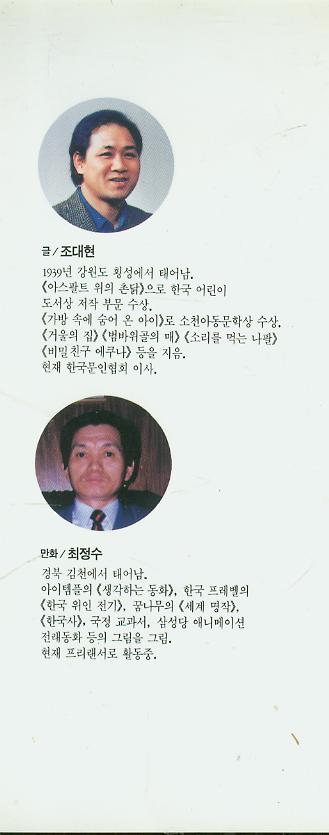 글/조대현
1939년 강원도 횡성에서 태어남.
《아스팔트 위의 촌닭》으로 한국 어린이
도서상 저작 부문 수상.
《가방 속에 숨어 온 아이》로 소천아동문학상 수상.
《거울의 집》《범바위골의 매》《소리를 먹는 나팔》
《비밀친구 에쿠나》 등을 지음.
현재 한국문인협회 이사.
만화/최정수
경북 김천에서 태어남.
아이템플의 《생각하는 동화》, 한국 프레벨의
《한국 위인 전기》, 꿈나무의 《세계 명작》,
《한국사》, 국정 교과서, 삼성당 애니메이션
전래동화 등의 그림을 그림.
현재 프리랜서로 활동중.